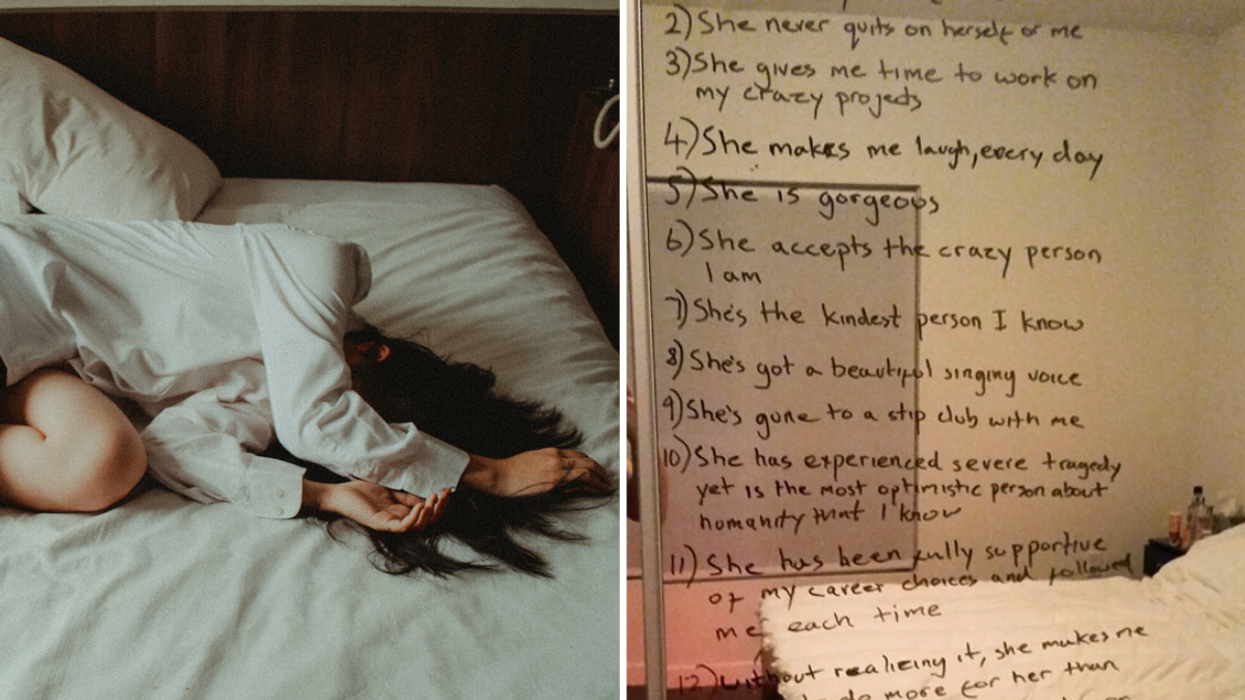 2) She never quits on herself or me
3) She gives me time to work on
my crazy projects
4) She makes me laugh, every day
5) She is gorgeous
6) She accepts the crazy person
I am
7) She's the kindest person I know
8) She's got a beautiful singing voice
9) She's gone to a strip club with me
10) She has experienced severe tragedy
yet is the most optimistic person about
humanity that I know
11) She has been fully supportive
of my career choices and followed
me each time
12) Without realizing it, she makes me
do more for her than